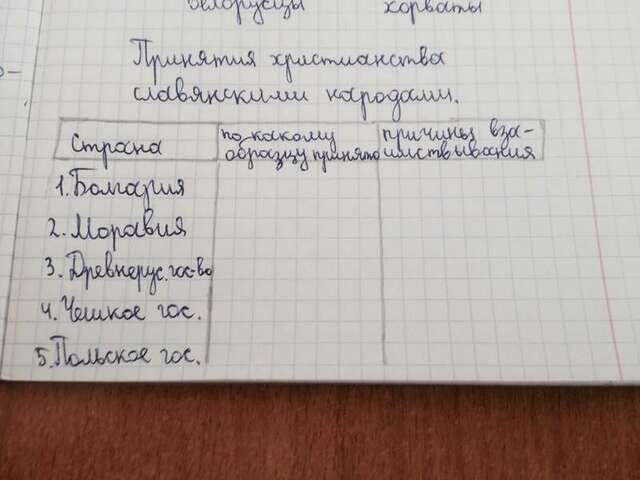 белорусцы хорваты
Принятия христианства
славянскими народами.
Страна
по-какому
образцу принято
причины вза-
имствывания
1. Болгария
2. Моравия
3. Древнерус. гос-во
4. Чешкое гос.
5. Польское гос.